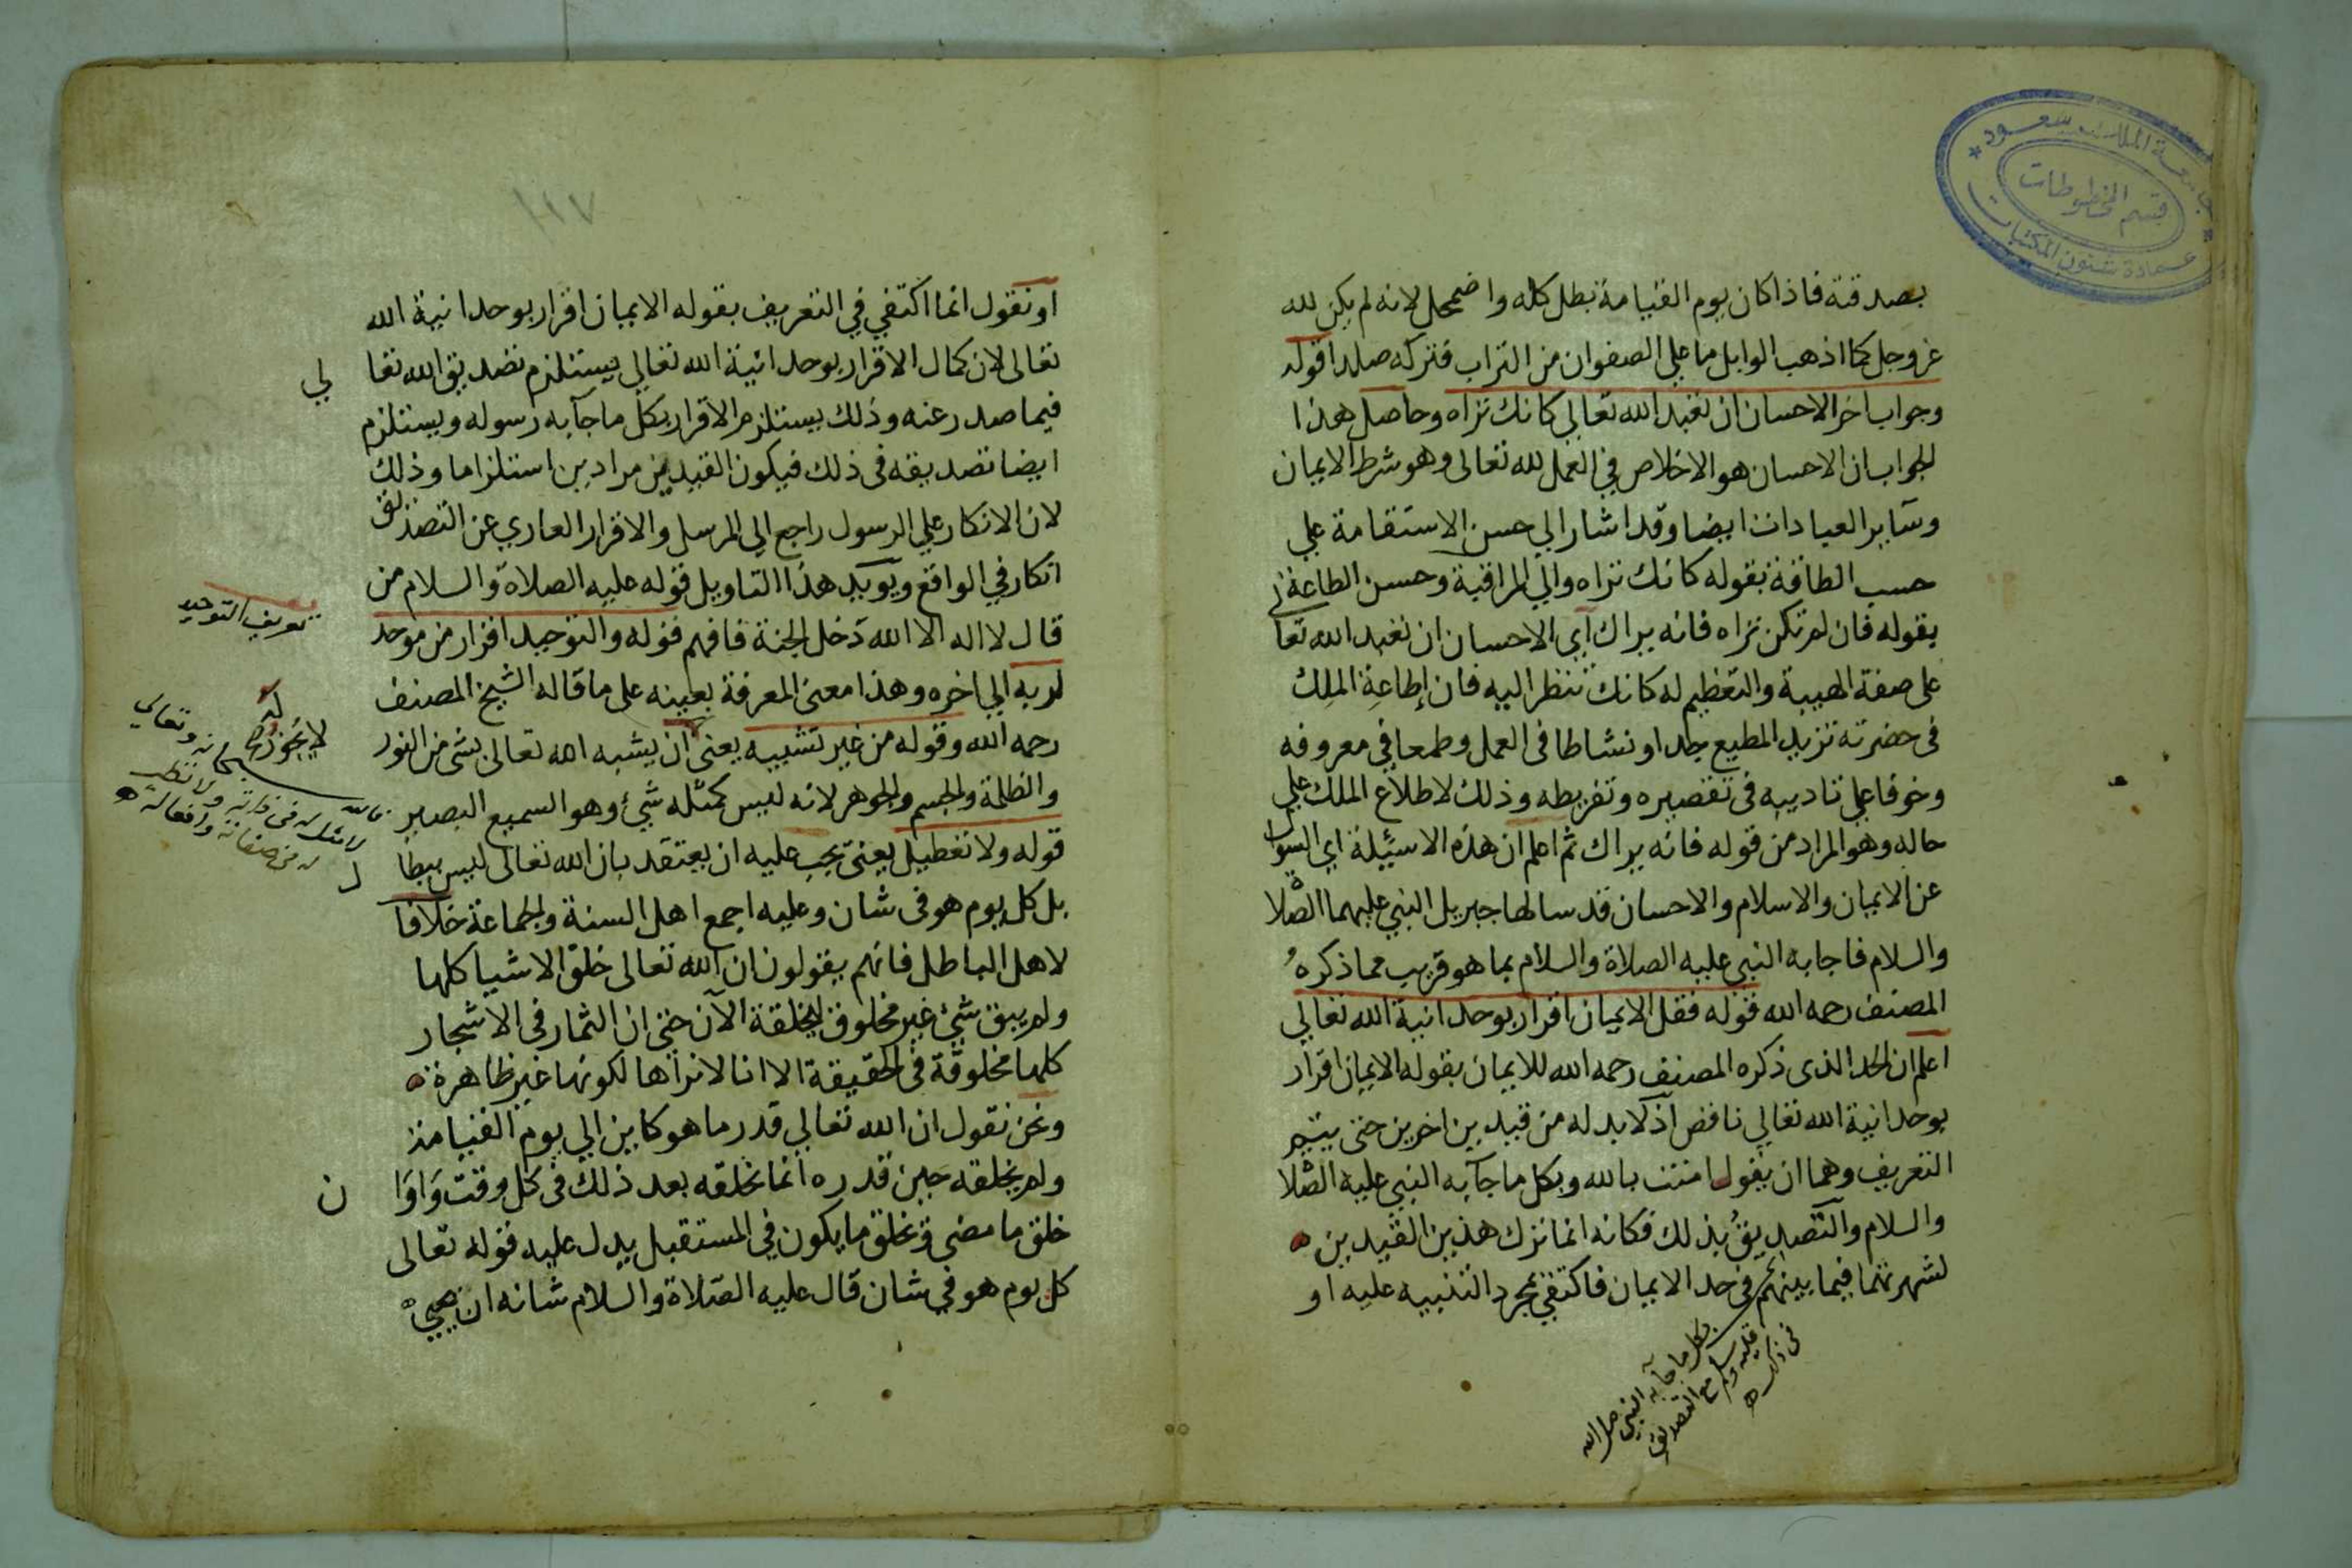 جامعة الملك سعود
قسم المخطوطات
عمادة شئون المكتبات
بصدقته فاذا كان يوم القيامة بطل كله واضمحل لانه لم يكن لله
عز وجل كما اذهب الوابل ما على الصفوان من التراب فتركه صلدا قوله
وجواب اخر الاحسان ان تعبد الله تعالى كانك تراه وحاصل هذا
الجواب ان الاحسان هو الاخلاص في العمل لله تعالى وهو شرط الايمان
وسآير العبادات ايضا وقد اشار الي حسن الاستقامة علي
حسب الطاقة بقوله كانك تراه والي المراقبة وحسن الطاعة
بقوله فان لم تكن تراه فانه يراك اي الاحسان ان تعبد الله تعا
على صفة الهيبة والتعظيم له كانك تنظر اليه فان إطاعة الملك
فى حضرته تزيد المطيع جدا ونشاطا فى العمل وطمعا في معروفه
وخوفا على تاديبه فى تقصيره وتفريطه وذلك لاطلاع الملك علي
حاله وهو المراد من قوله فانه يراك ثم اعلم ان هذه الاسئيلة اي السوال
عن الايمان والاسلام والاحسان قد سالها جبريل النبي عليهما الصلاة
والسلام فاجابه النبي عليه الصلاة والسلام بما هو قريب مما ذكره
المصنف رحمه الله قوله فقل الايمان اقرار بوحدانية الله تعالي
اعلم ان الحد الذى ذكره المصنف رحمه الله للايمان بقوله الايمان اقرار
بوحدانية الله تعالي ناقص اذ لا بد له من قيدين اخرين حتى يتم
التعريف وهما ان يقول امنت بالله وبكل ما جآ به النبي عليه الصلاة
والسلام والتصديق بذلك فكانه انما ترك هذين القيدين ه
لشهرتهما فيما بينهم فى حد الايمان فاكتفى بمجرد التنبيه عليه او
بكل ما جآ به النبي صلى الله
عليه وسلم مع التصديق
فى ذلك ه
او نقول انما اكتفي في التعريف بقوله الايمان اقرار بوحدانية الله
تعالى لان كمال الاقرار بوحدانية الله تعالي يستلزم تصديق الله تعا لي
فيما صدر عنه وذلك يستلزم الاقرار بكل ما جآ به رسوله ويستلزم
ايضا تصديقه فى ذلك فيكون القيدين مرادين استلزاما وذلك
لان الانكار علي الرسول راجع الي المرسل والاقرار العاري عن التصديق
انكار في الواقع ويويد هذا التاويل قوله عليه الصلاة والسلام من
قال لا اله الا الله دخل الجنة فافهم قوله والتوحيد اقرار من موحد
لربه الي اخره وهذا معنى المعرفة بعينه على ما قاله الشيخ المصنف
رحمه الله وقوله من غير تشبيه يعنى ان يشبه الله تعالى بشى من النور
والظلمة والجسم والجوهر لانه ليس كمثله شيء وهو السميع البصير
قوله ولا تعطيل يعنى يجب عليه ان يعتقد بان الله تعالى ليس ببطا ل
بل كل يوم هو فى شان وعليه اجمع اهل السنة والجماعة خلافا
لاهل الباطل فانهم يقولون ان الله تعالى خلق الاشيا كلها
ولم يبق شيء غير مخلوق ليخلقه الآن حتى ان الثمار فى الاشجار
كلها مخلوقة فى الحقيقة الا انا لا نراها لكونها غير ظاهرة ه
ونحن نقول ان الله تعالي قدر ما هو كاين الي يوم القيامة
ولم يخلقه حين قدره انما يخلقه بعد ذلك فى كل وقت واوا ن
خلق ما مضى ويخلق ما يكون في المستقبل يدل عليه قوله تعالى
كل يوم هو في شان قال عليه الصلاة والسلام شانه ان يحيي
تعريف التوحيد
لا يجوز